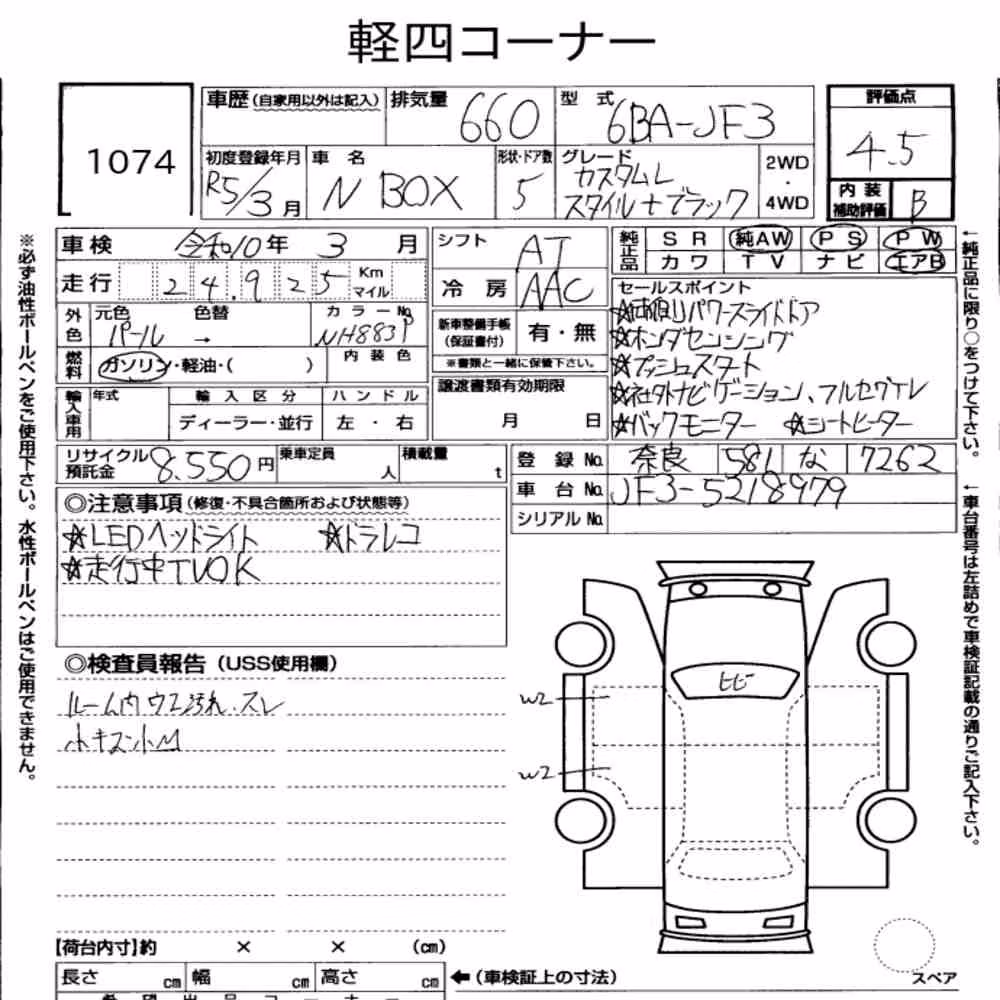 軽四コーナー
1074
車歴 (自家用以外は記入)
排気量 660
型式 6BA-JF3
評価点
4.5
初度登録年月
R5/3月
車名
N BOX
形状・ドア数
5
グレード
カスタムL
スタイル+ブラック
2WD
・
4WD
内装
補助評価 B
車検 令和10年 3月
走行 24,925 Km
マイル
外色 元色 色替 カラーNo.
パール → NH883P
燃料 ガソリン・軽油・( ) 内装色
輸入車用 年式 輸入区分 ハンドル
ディーラー・並行 左・右
シフト AT
冷房 AAC
新車整備手帳
(保証書付) 有・無
※書類と一緒に保管下さい。
譲渡書類有効期限
月 日
純正品 SR 純AW PS PW
カワ TV ナビ エアB
セールスポイント
☆両側パワースライドドア
☆ホンダセンシング
☆プッシュスタート
☆社外ナビゲーション、フルセグTV
☆バックモニター ☆シートヒーター
リサイクル
預託金 8,550円
乗車定員 人
積載量 t
登録No. 奈良 581 な 7262
車台No. JF3-5218979
シリアルNo.
◎注意事項(修復・不具合箇所および状態等)
☆LEDヘッドライト ☆ドラレコ
☆走行中TVOK
◎検査員報告(USS使用欄)
ルーム内ウエ汚れ.スレ
小キズ小凹
ヒビ
W2
W2
【荷台内寸】約 × × (cm)
長さ cm 幅 cm 高さ cm ←(車検証上の寸法)
スペア
※必ず油性ボールペンをご使用下さい。水性ボールペンはご使用できません。
←純正品に限り○をつけて下さい。
←車台番号は左詰めで車検証記載の通りご記入下さい。